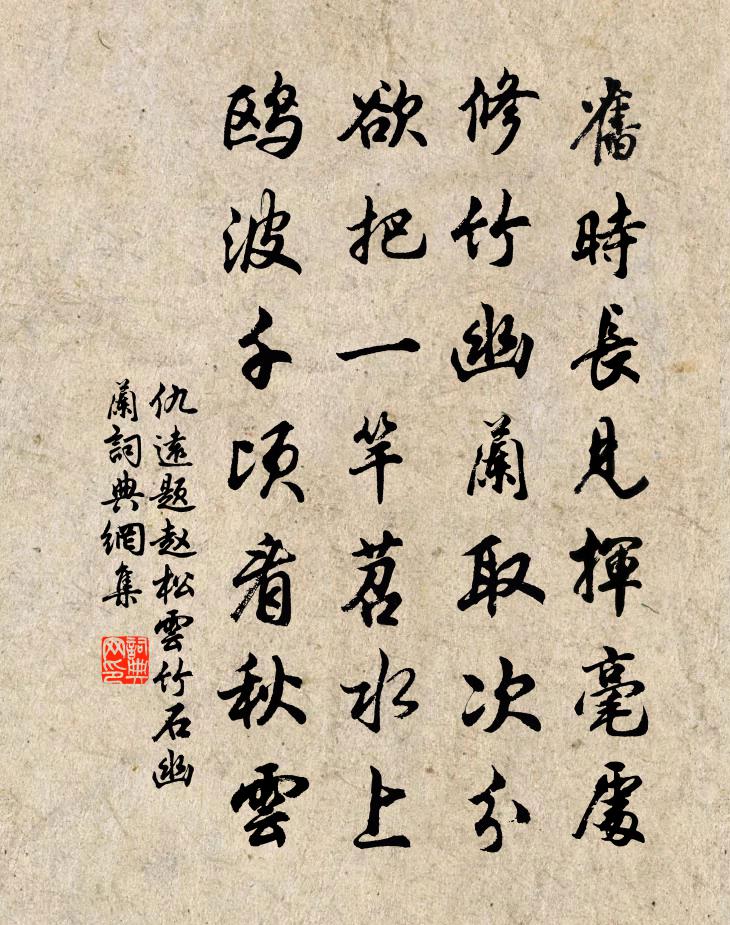 舊時長見揮毫處
修竹幽蘭取次分
欲把一竿苕水上
鸥波千頃看秋雲
仇遠題趙松雲竹石幽
蘭詞典網集
詞典
网印